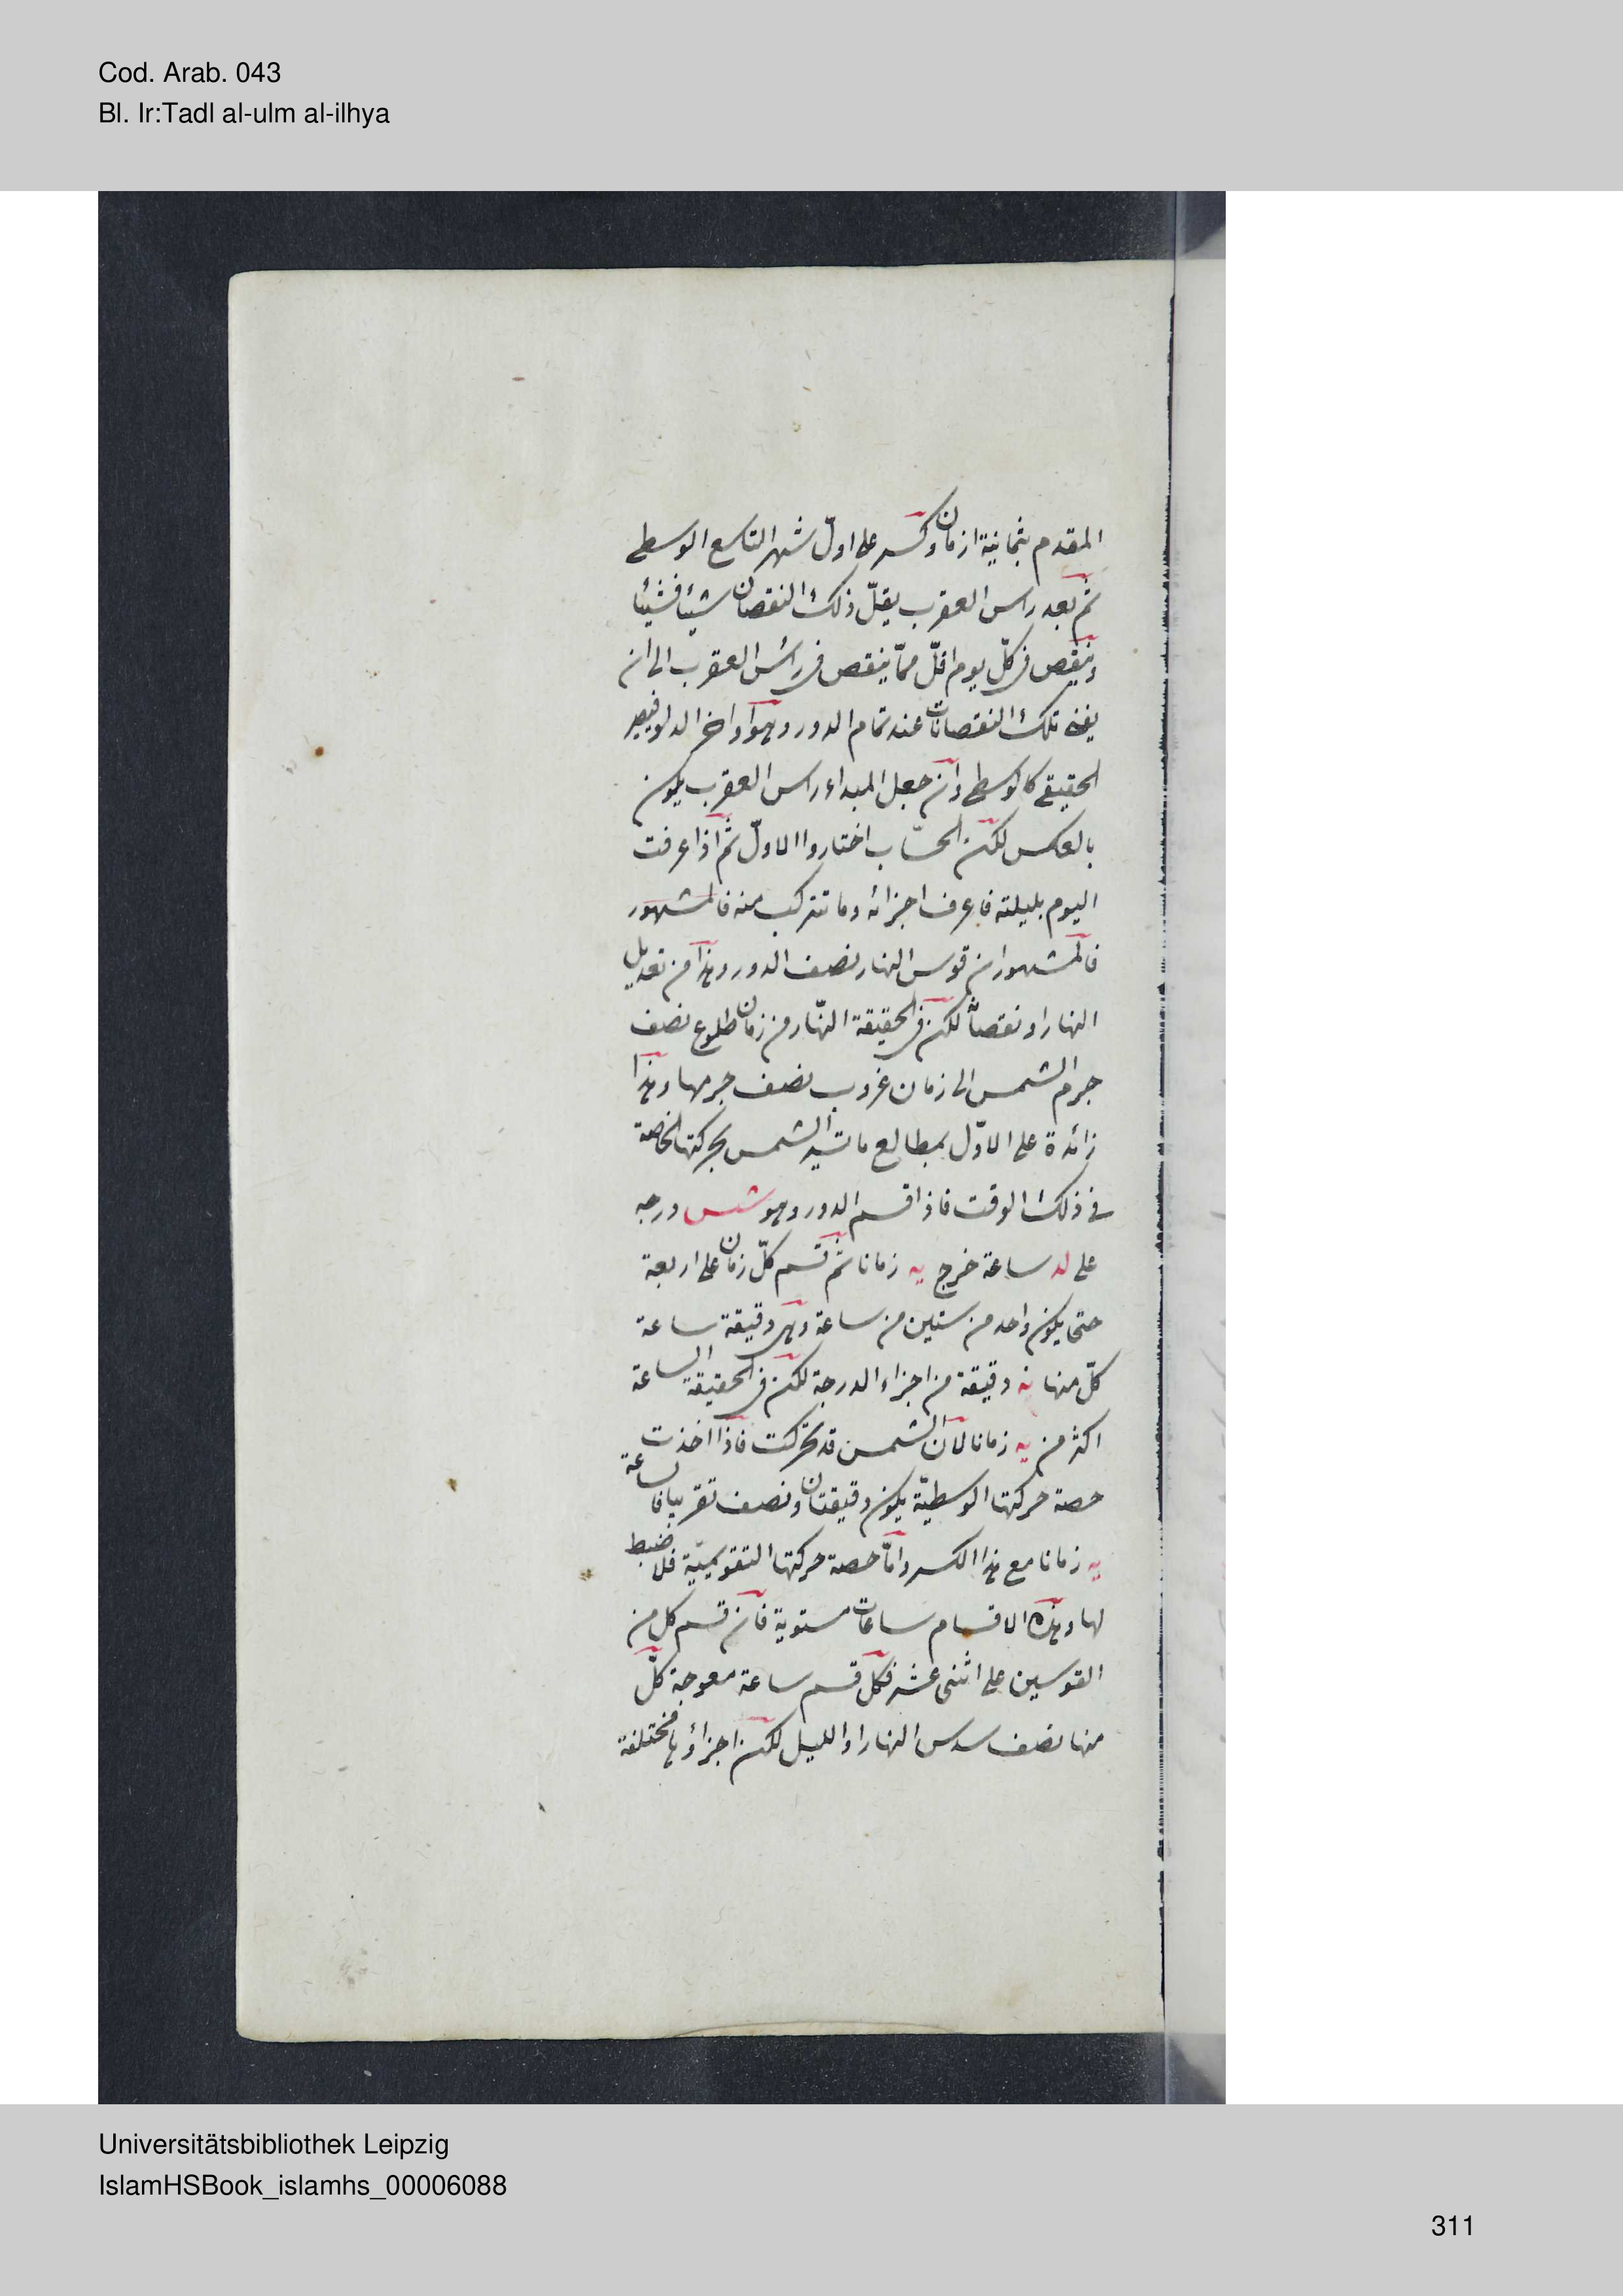 Cod. Arab. 043
Bl. Ir:Tadl al-ulm al-ilhya
المقدم بثمانية ازمان وكسر على اول شهر التاسع الوسطى
ثم بعد راس العقرب يقلّ ذلك النقصان شيئا فشيئا
وينقص فى كلّ يوم اقلّ ممّا ينقص فى رأس العقرب الى ان
يفنى تلك النقصانات عند تمام الدور وهو اواخر الدلو فيصير
الحقيقى كالوسطى وان جعل المبداء راس العقرب يكون
بالعكس لكن الحسّاب اختاروا الاولّ ثم اذا عرفت
اليوم بليلته فاعرف اجزائه وما تتركب منه فالمشهور
فالمشهور ان قوس النهار نصف الدور وهذا من تعديل
النهار او نقصاً لكن فى الحقيقة النهّار من زمان طلوع نصف
جرم الشمس الى زمان غروب نصف جرمها وهذا
زائدة على الاوّل بمطالع ما تسير الشمس بحركتها الخاصة
فى ذلك الوقت فاذا قسم الدور وهو شس درجه
على لد ساعة خرج يه زمانا ثم تقسم كلّ زمان على اربعة
حتى يكون واحد من ستين من ساعة وهى دقيقة ساعة
كلّ منها يه دقيقة من اجزاء الدرجة لكن فى الحقيقة الساعة
اكثر من يه زمانا لان الشمس قد تحركت فاذا اخذت
حصة حركتها الوسطيّة يكون دقيقتان ونصف تقريبا فالساعة
يه زمانا مع هذا الكسر وامّا حصة حركتها التقويميّة فلا ضبط
لها وهذه الاقسام ساعات مستوية فان قسم كل من
القوسين على اثنى عشر فكل قسم ساعة معوجة كلّ
منها نصف سدس النهار او الليل لكن اجزاؤها مختلفة
Universitätsbibliothek Leipzig
IslamHSBook_islamhs_00006088
311